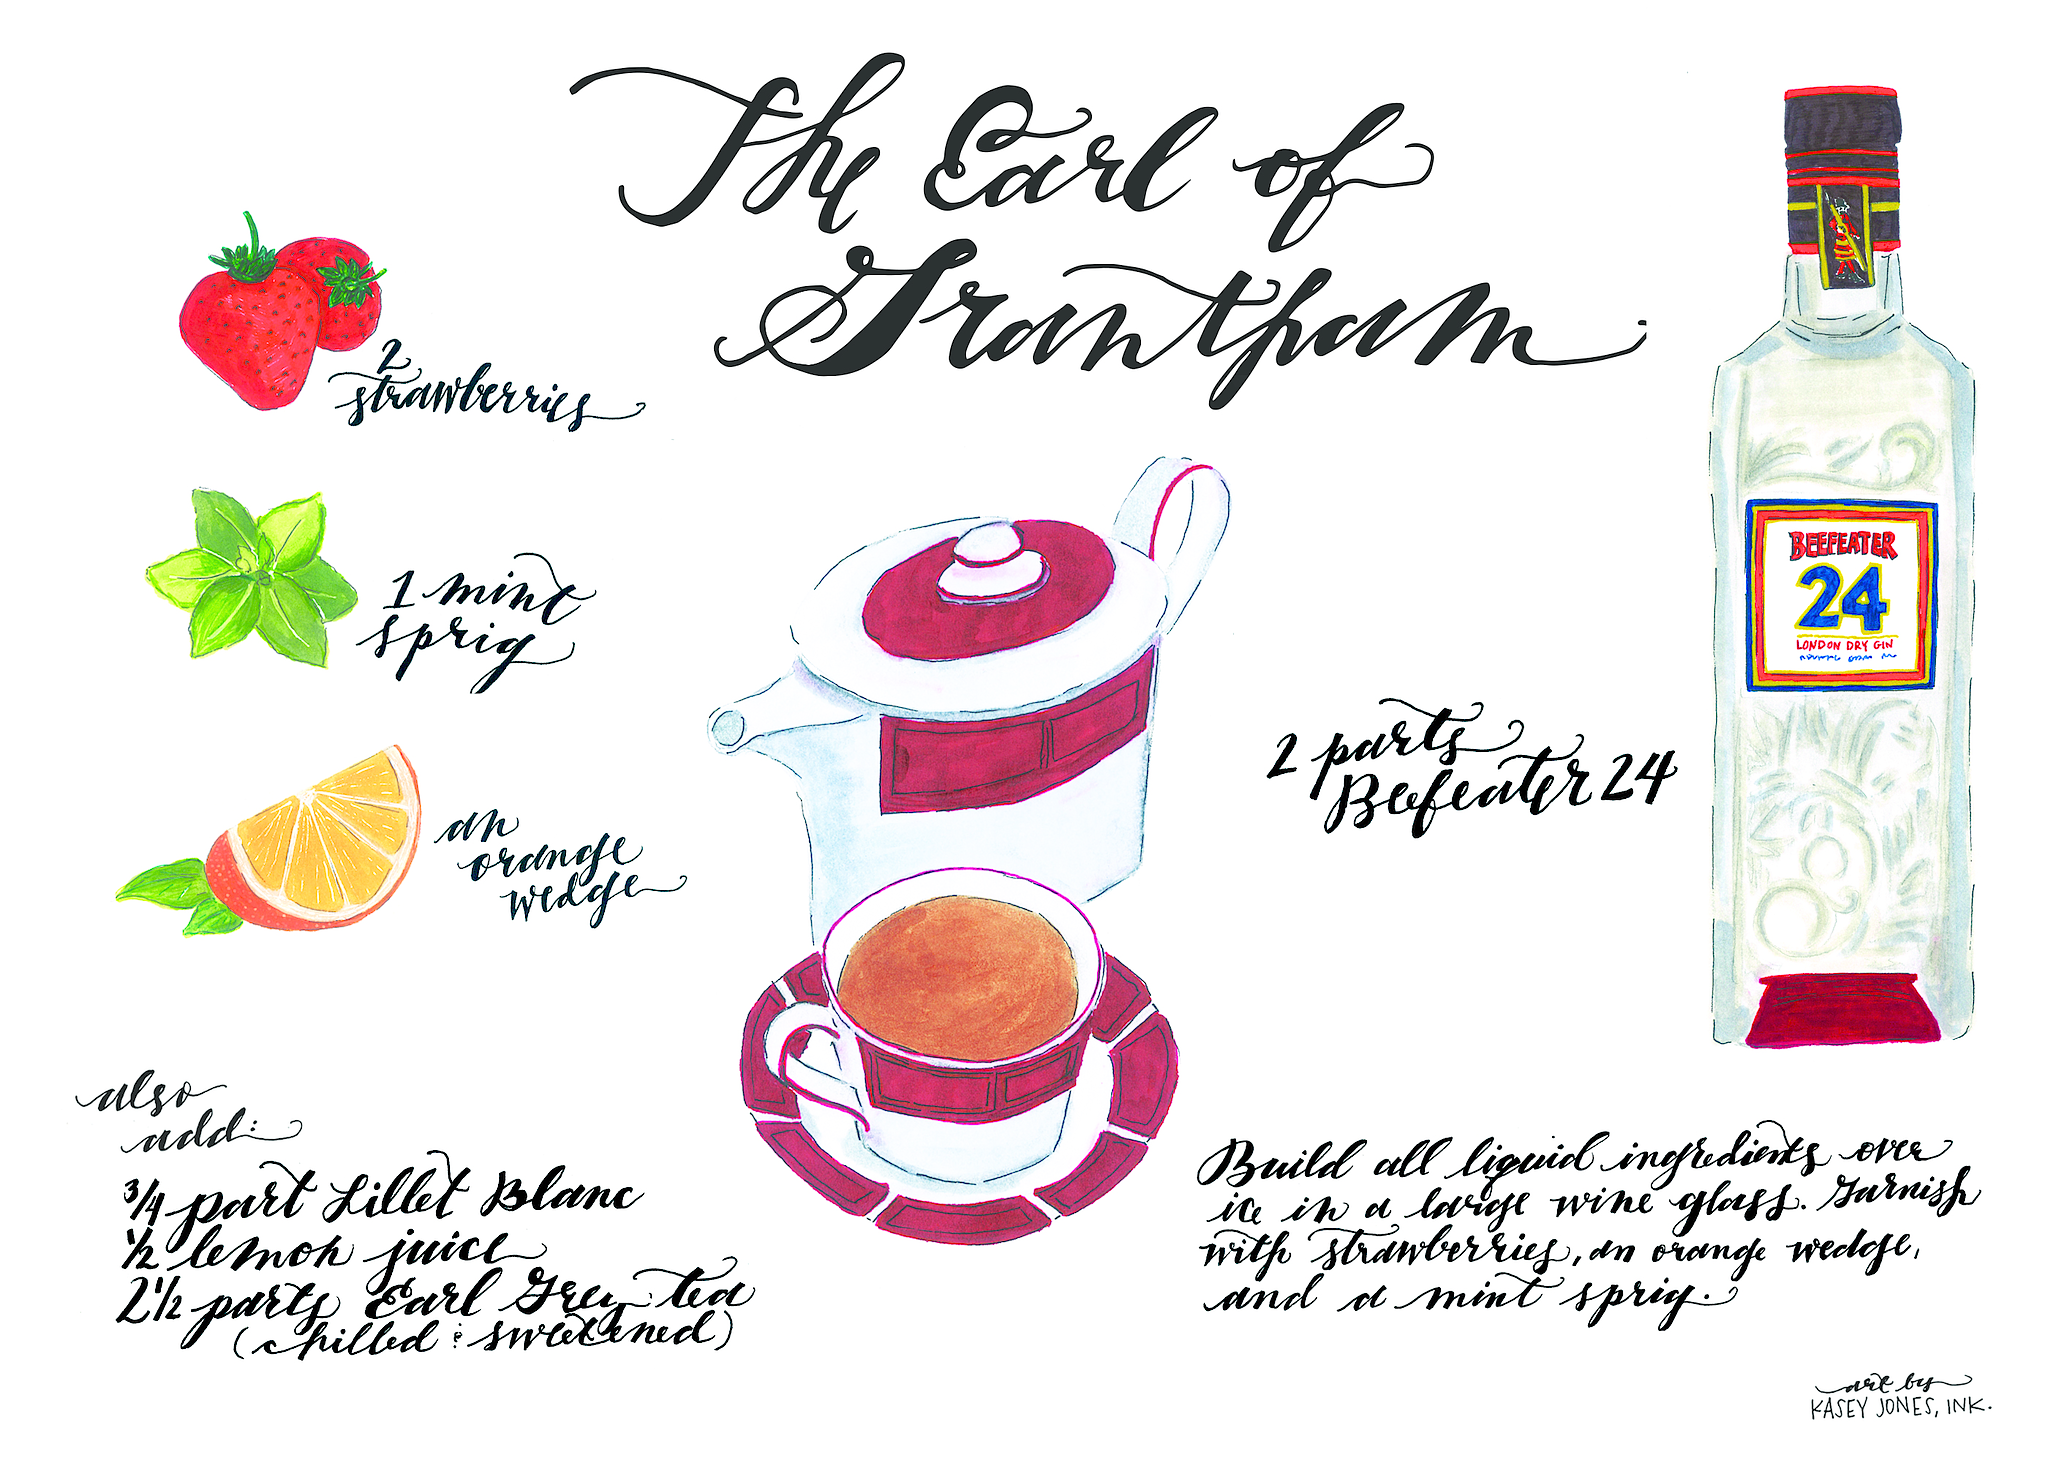 The Earl of
Grantham
2
strawberries
1 mint
sprig
an
orange
wedge
BEEFEATER
24
LONDON DRY GIN
2 parts
Beefeater 24
also
add:
3/4 part Lillet Blanc
1/2 lemon juice
2 1/2 parts Earl Grey tea
(chilled & sweetened)
Build all liquid ingredients over
ice in a large wine glass. Garnish
with strawberries, an orange wedge,
and a mint sprig.
art by
KASEY JONES, INK.